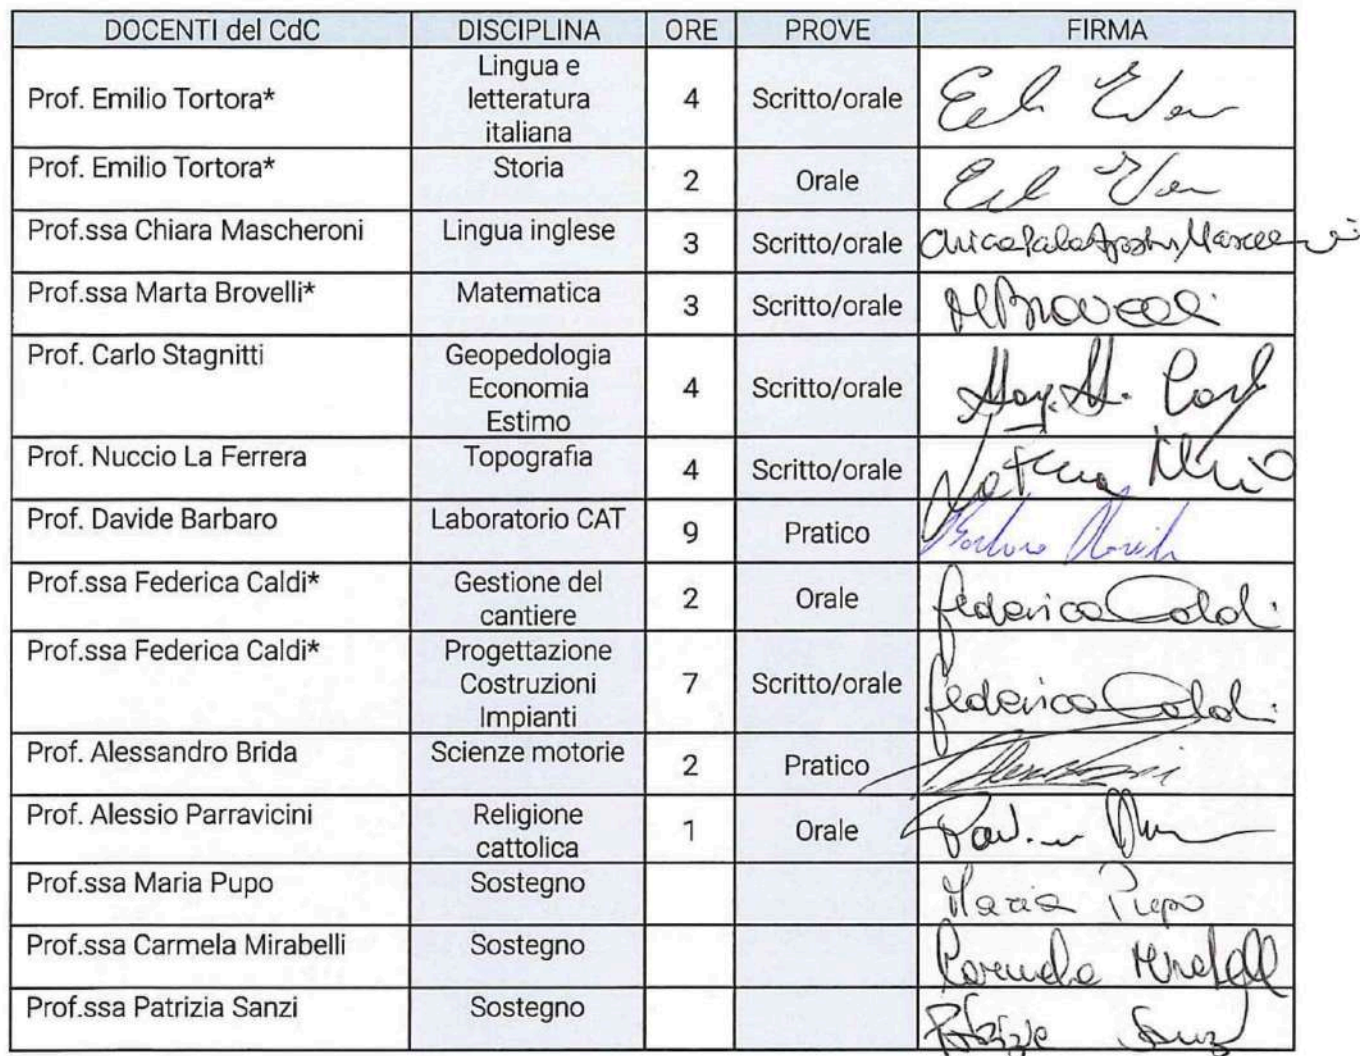 DOCENTI del CdC DISCIPLINA ORE PROVE FIRMA
Prof. Emilio Tortora* Lingua e letteratura italiana 4 Scritto/orale
Prof. Emilio Tortora* Storia 2 Orale
Prof.ssa Chiara Mascheroni Lingua inglese 3 Scritto/orale
Prof.ssa Marta Brovelli* Matematica 3 Scritto/orale MBrovelli
Prof. Carlo Stagnitti Geopedologia Economia Estimo 4 Scritto/orale
Prof. Nuccio La Ferrera Topografia 4 Scritto/orale
Prof. Davide Barbaro Laboratorio CAT 9 Pratico
Prof.ssa Federica Caldi* Gestione del cantiere 2 Orale Federica Caldi
Prof.ssa Federica Caldi* Progettazione Costruzioni Impianti 7 Scritto/orale Federica Caldi
Prof. Alessandro Brida Scienze motorie 2 Pratico
Prof. Alessio Parravicini Religione cattolica 1 Orale
Prof.ssa Maria Pupo Sostegno Maria Pupo
Prof.ssa Carmela Mirabelli Sostegno Carmela Mirabelli
Prof.ssa Patrizia Sanzi Sostegno